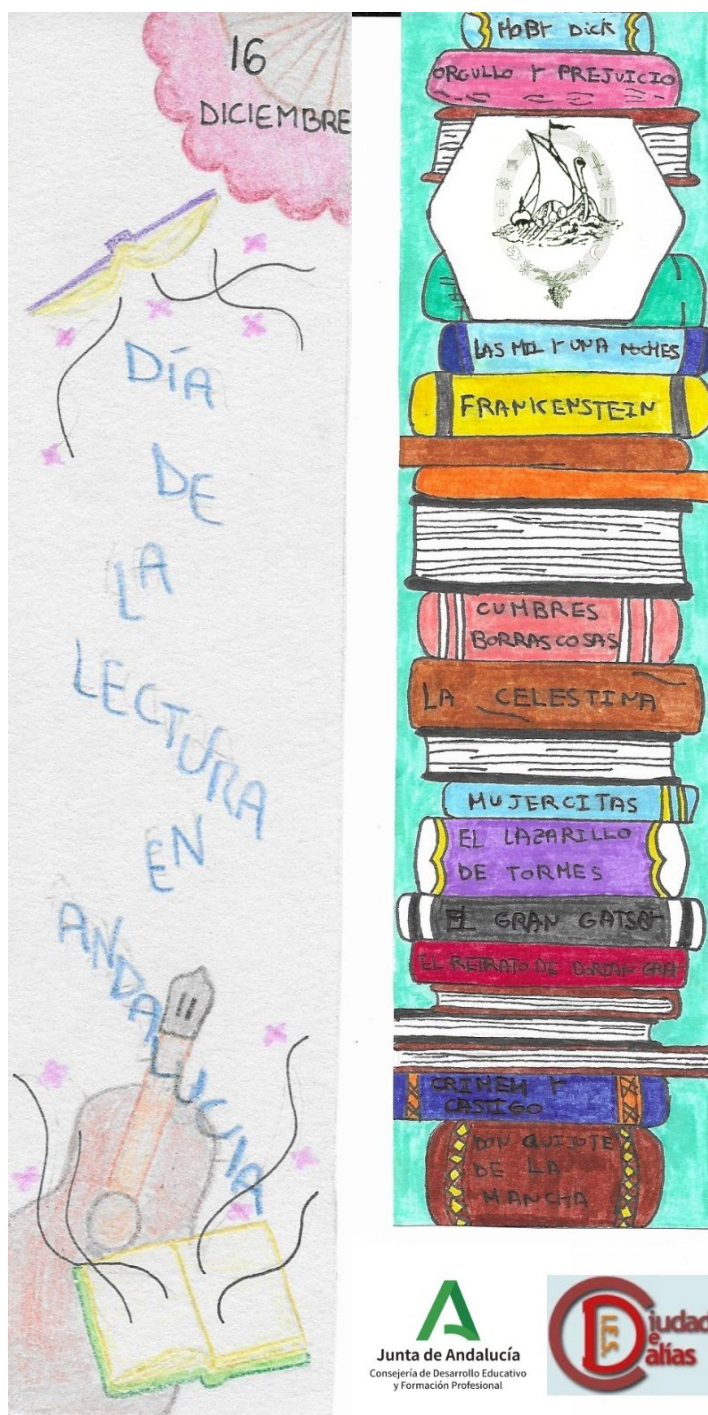 16
DICIEMBRE
DÍA
DE
LA
LECTURA
EN
ANDALUCÍA
MOBY DICK
ORGULLO Y PREJUICIO
LAS MIL Y UNA NOCHES
FRANKENSTEIN
CUMBRES
BORRASCOSAS
LA CELESTINA
MUJERCITAS
EL LAZARILLO
DE TORMES
EL GRAN GATSBY
EL RETRATO DE DORIAN GRAY
CRIMEN Y
CASTIGO
DON QUIJOTE
DE LA
MANCHA
Junta de Andalucía
Consejería de Desarrollo Educativo
y Formación Profesional
I.E.S.
Ciudad
De
Dalías